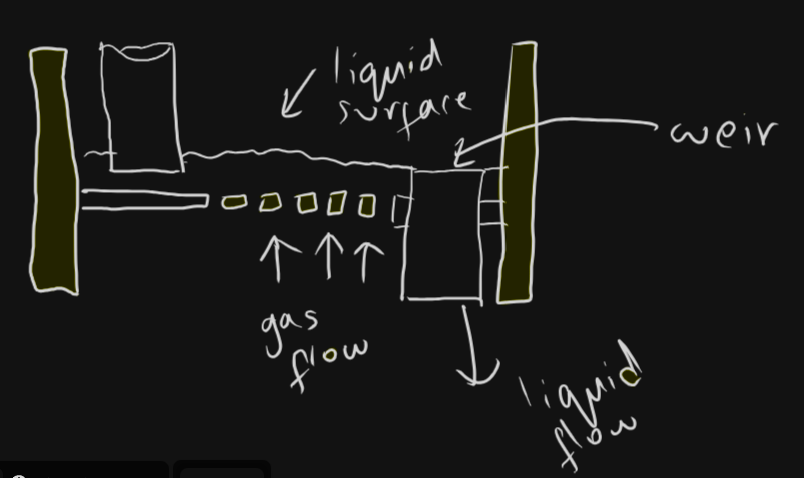 liquid
surface
weir
gas
flow
liquid
flow